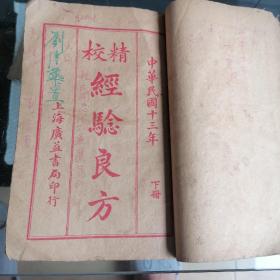 中華民國十三年
下冊
精校
經驗良方
上海廣益書局印行